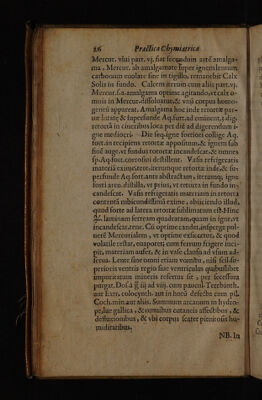 26 Practica Chymiatrica
Mercur. viui part. vj. fiat secundum artē amalga-
ma. Mercur. ab amalgamate super ignem lentum
carbonum euolare sine in tigillo, remanebit Calx
Solis in fundo. Calcem iterum cum aliis part. vj.
Mercur. s. a. amalgama optime agitando, vt calx o-
mnis in Mercur. dissoluatur, & vnū corpus homo-
geneū appareat. Amalgama hoc inde retortæ par-
uæ lutatę & superfunde Aq. fort. ad eminent. 2 digit.
retortā in cineribus loca per diē ad digerendum i-
gne mediocri. Die seq. igne fortiori collige Aq.
fort. in recipiens retortæ appositum, & ignem sub
fine auge, vt fundus retortæ incandescat, & omnes
sp. Aq. fort. corrosiui destillent. Vasis refrigeratis
materiā exime, tere, iterumque retortæ inde, & su-
perfunde Aq. fort. ante abstractam, iterumq. igne
forti arenæ distilla, vt prius, vt retorta in fundo in-
candescat. Vasis refrigeratis materiam in retorta
contentā rubicundissimā exime, abiiciendo illud,
quod forte ad latera retortæ sublimatum est. Hinc
laminam ferream quadratam, quam in igne, vt
incandescat, tene. Cū optime candet, insperge pul-
uerē Mercurialem, vt optime exsiccetur, & quod
volatile restat, euaporet; cum ferrum frigere inci-
pit, materiam aufer, & in vase clauso ad vsum ad-
serua. Lente sine omni etiam vomitu, nisi scil. su-
perioris ventris regio siue ventriculus quibuslibet
impuritatum mineris refertus sit, per secessum
purgat. Dosis à iij ad viij. cum pauxil. Terebinth.
aut Extr. colocynth. aut in horū defectū cum pil.
Coch. min. aut aliis. Summum arcanum in hydro-
pe, lue gallica, & omnibus cutaneis affectibus, &
defluxionibus, & vbi corpus scatet plenitosis hu-
miditatibus.
NB. In